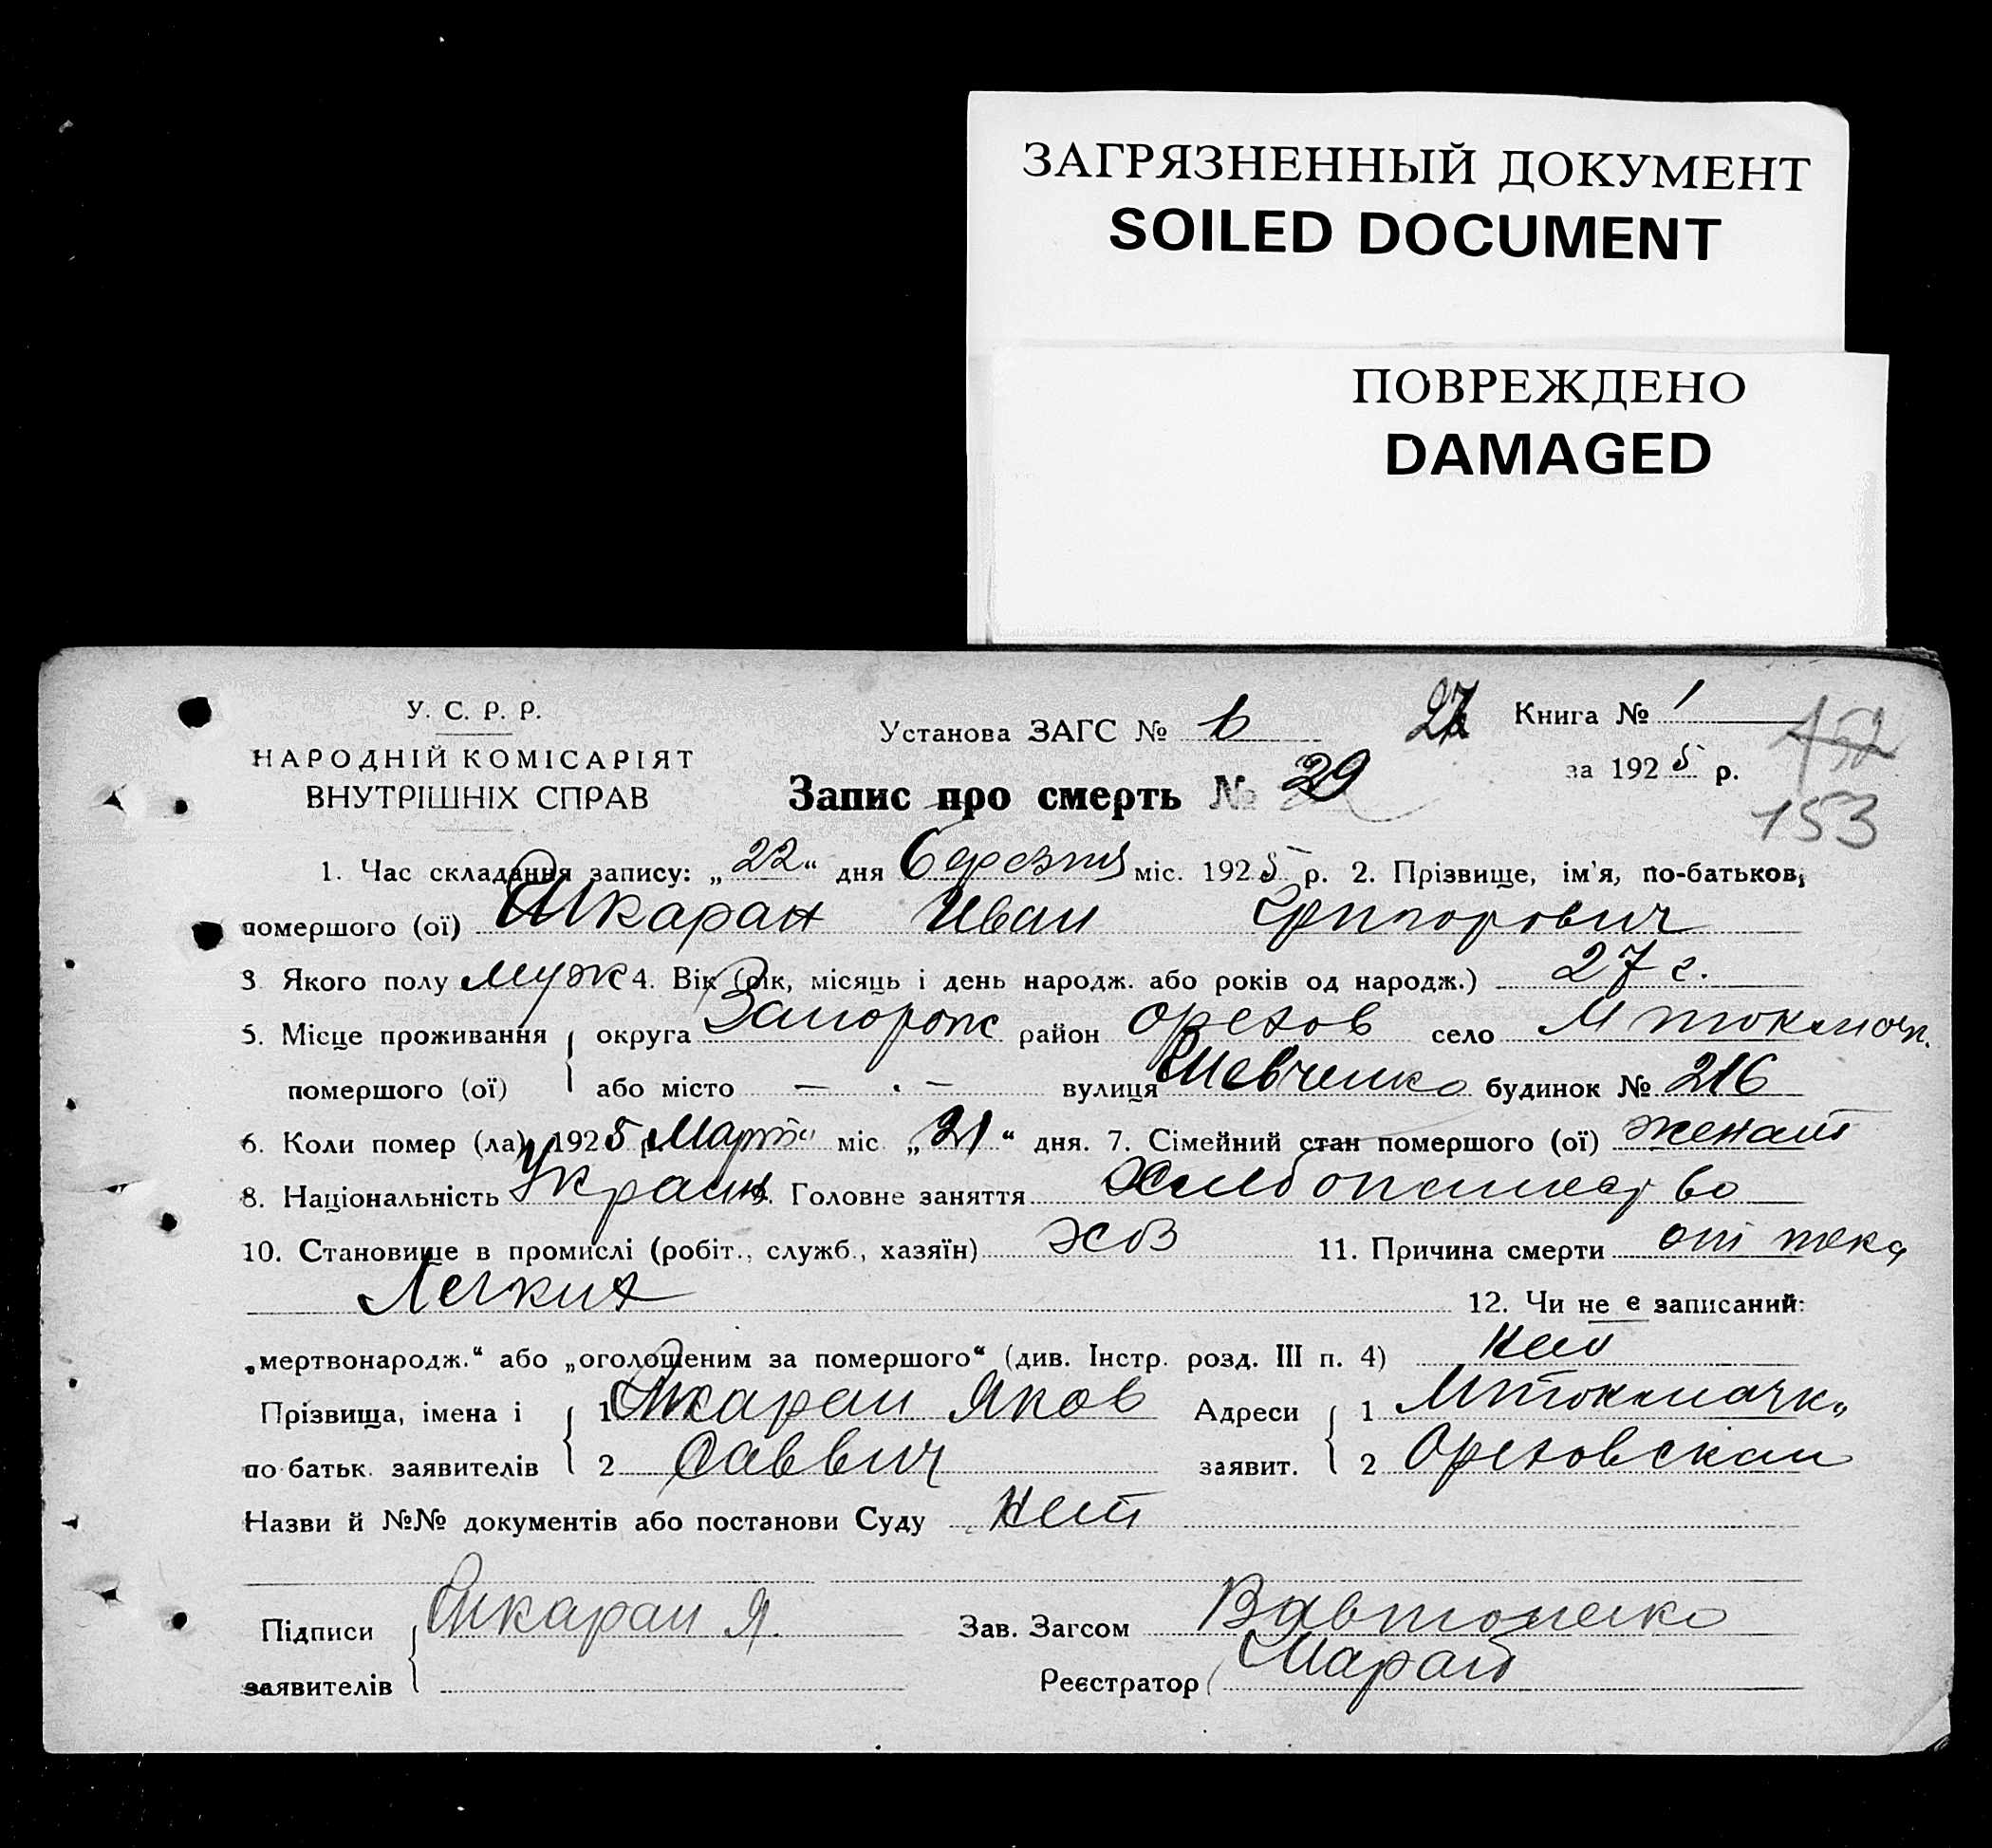 ЗАГРЯЗНЕННЫЙ ДОКУМЕНТ
SOILED DOCUMENT
ПОВРЕЖДЕНО
DAMAGED
У. С. Р. Р.
НАРОДНІЙ КОМІСАРІЯТ
ВНУТРІШНІХ СПРАВ
Установа ЗАГС №
Книга № 1
за 1925 р.
152
153
Запис про смерть № 29
1. Час складання запису: „22“ дня березня міс. 1925 р. 2. Прізвище, ім'я, по-батькові
помершого (ої) Шкаран Иван Григорович
3 Якого полу муж 4. Вік (рік, місяць і день народж. або років од народж.) 27 г.
5. Місце проживання помершого (ої) округа Запорож район Орехов село М токмач.
або місто — . — вулиця Шевченко будинок № 216
6. Коли помер (ла) 1925 р. Марта міс „21“ дня. 7. Сімейний стан помершого (ої) женат
8. Національність Украин. Головне заняття Хлебопашество
10. Становище в промислі (робіт., служб., хазяїн) хоз 11. Причина смерти от тека
Легких 12. Чи не е записаний:
„мертвонародж.“ або „оголошеним за помершого“ (див. Інстр. розд. III п. 4) нет
Прізвища, імена і по батьк. заявителів 1 Шкаран Яков Адреси заявит. 1 Мтокмачк.
2 Саввич 2 Ореховскаи
Назви й №№ документів або постанови Суду Нет
Підписи заявителів Шкаран Я. Зав. Загсом
Реєстратор